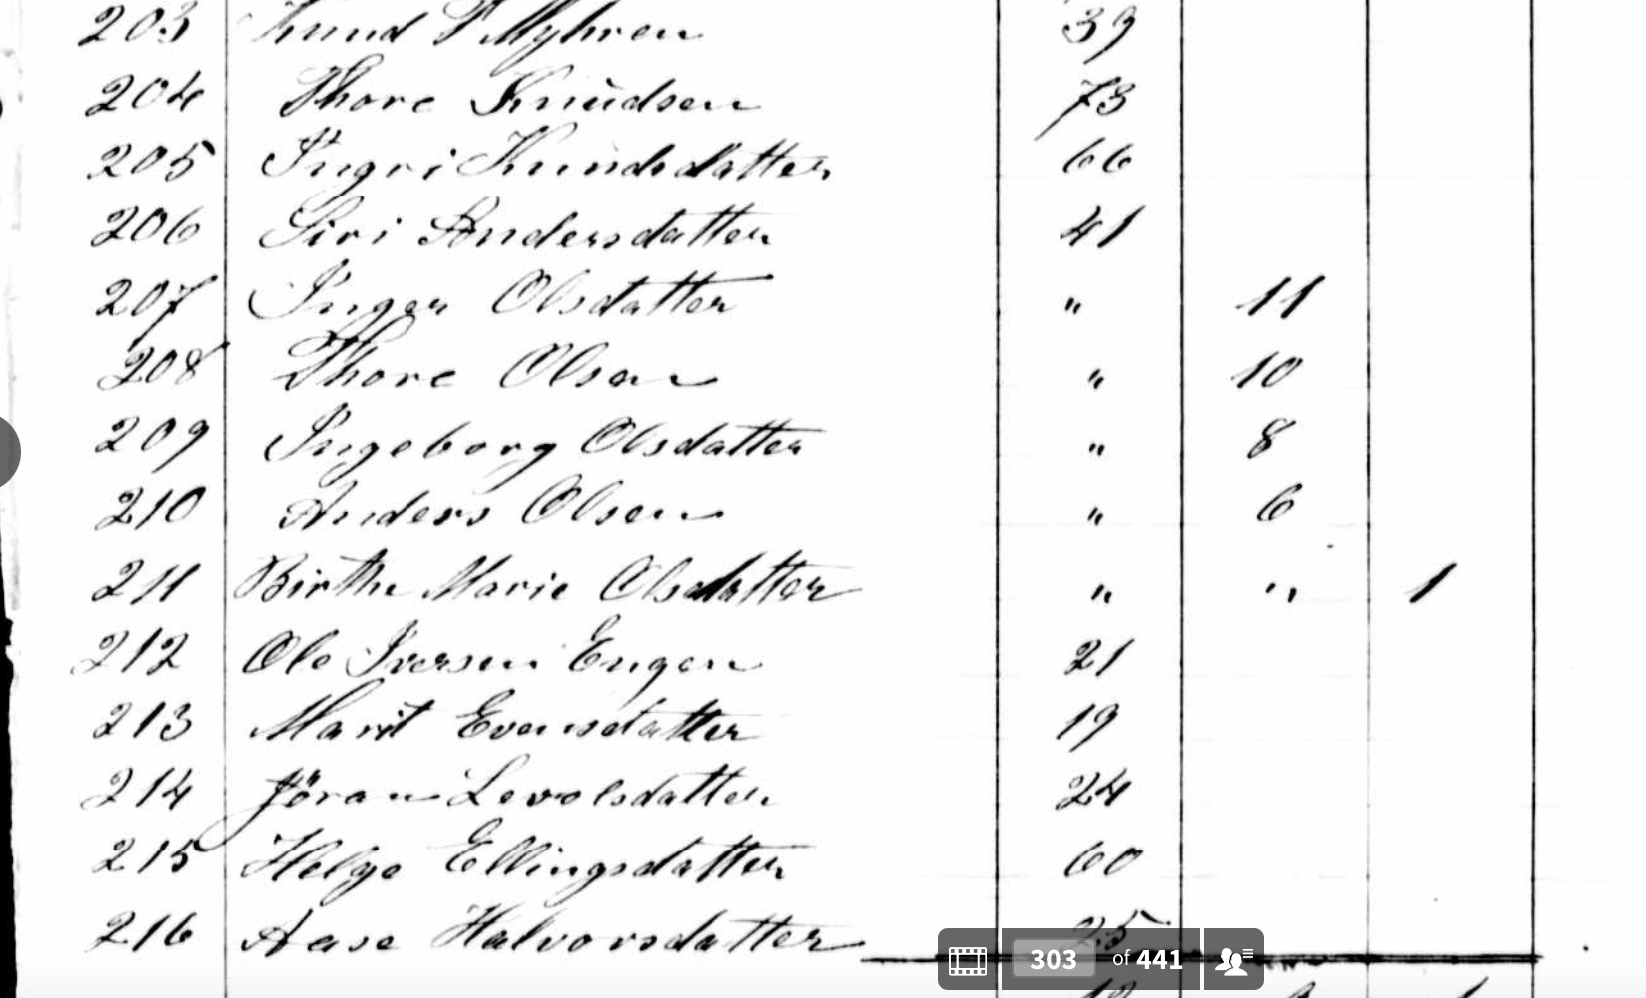 203 Knud T Myhren 39
204 Thore Knudsen 73
205 Ingri Knudsdatter 66
206 Siri Andersdatter 41
207 Inger Olsdatter " 11
208 Thore Olsen " 10
209 Ingeborg Olsdatter " 8
210 Anders Olsen " 6
211 Birthe Marie Olsdatter " " 1
212 Ole Iversen Engen 21
213 Marit Evensdatter 19
214 Jöran Levolsdatter 24
215 Helge Ellingsdatter 60
216 Aase Halvorsdatter 25
303 of 441